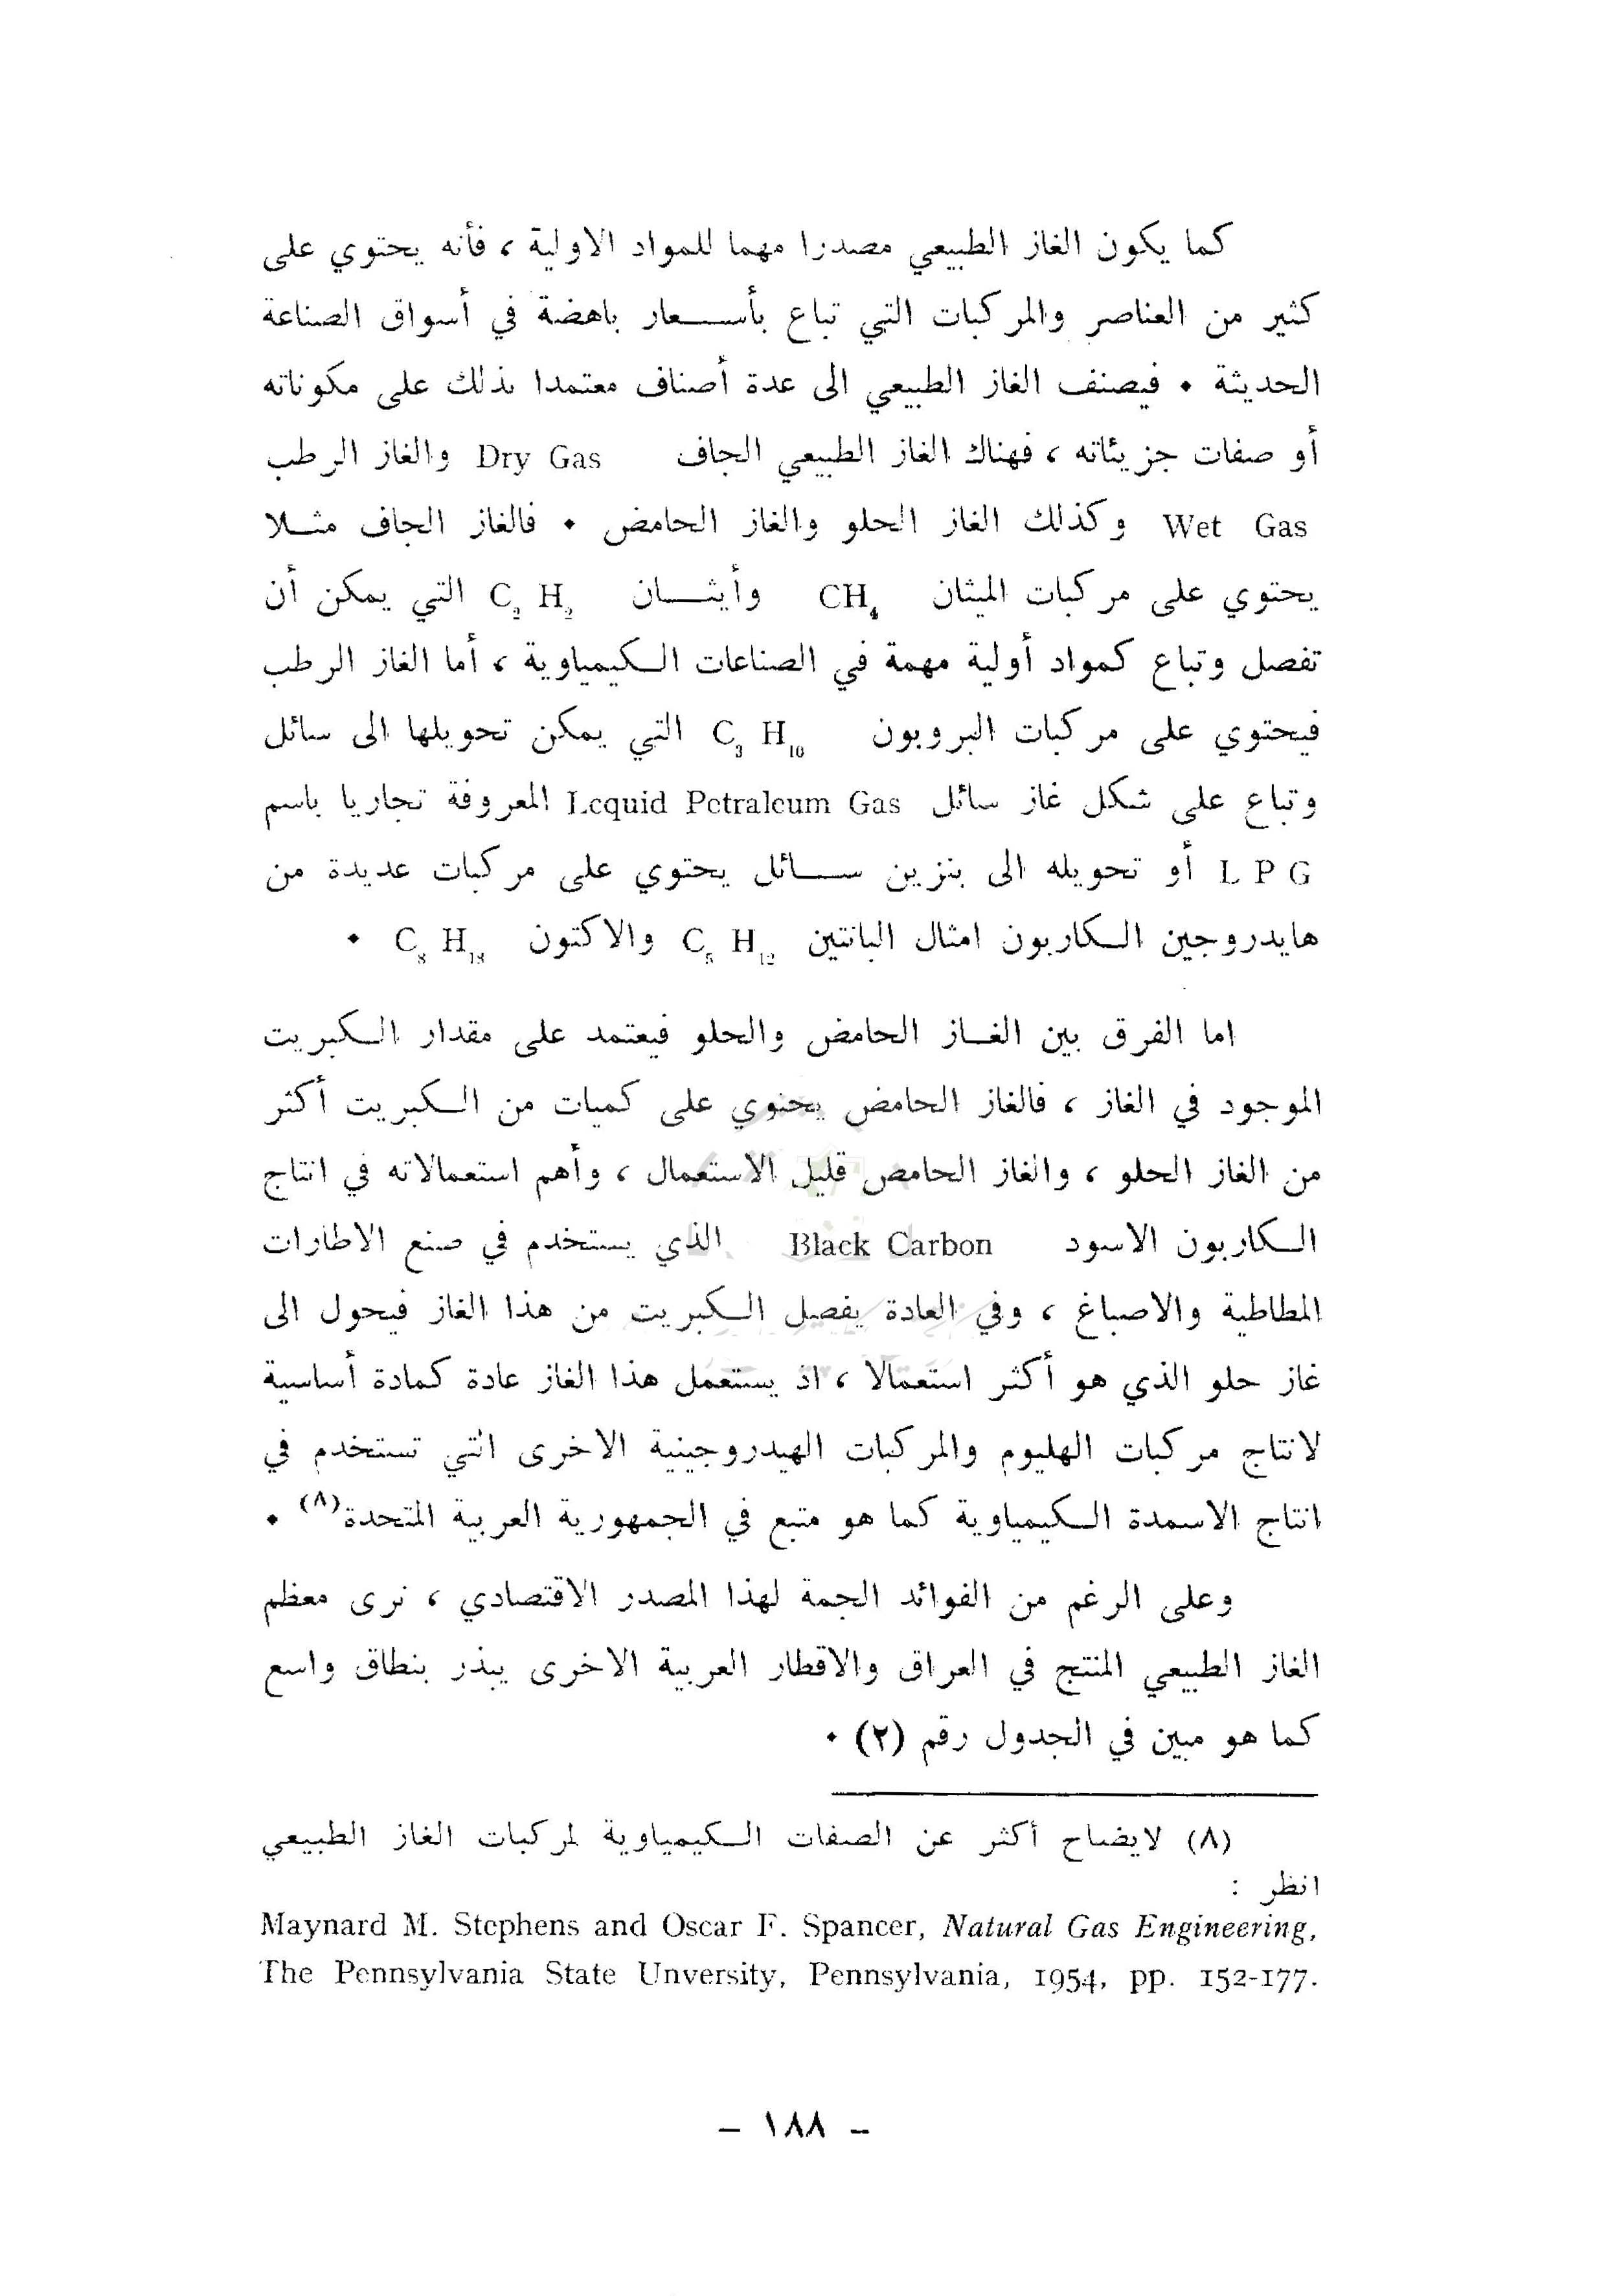 كما يكون الغاز الطبيعي مصدرا مهما للمواد الاولية ، فأنه يحتوي على
كثير من العناصر والمركبات التي تباع بأســعار باهضة في أسواق الصناعة
الحديثة . فيصنف الغاز الطبيعي الى عدة أصناف معتمدا بذلك على مكوناته
أو صفات جزيئاته ، فهناك الغاز الطبيعي الجاف Dry Gas والغاز الرطب
Wet Gas وكذلك الغاز الحلو والغاز الحامض . فالغاز الجاف مثــلا
يحتوي على مركبات الميثان CH₄ وأيثــان C₂ H₂ التي يمكن أن
تفصل وتباع كمواد أولية مهمة في الصناعات الـكيمياوية ، أما الغاز الرطب
فيحتوي على مركبات البروبون C₃ H₁₀ التي يمكن تحويلها الى سائل
وتباع على شكل غاز سائل Lequid Petraleum Gas المعروفة تجاريا باسم
L P G أو تحويله الى بنزين ســائل يحتوي على مركبات عديدة من
هايدروجين الـكاربون امثال البانتين C₅ H₁₂ والاكتون C₈ H₁₈ .
اما الفرق بين الغــاز الحامض والحلو فيعتمد على مقدار الـكبريت
الموجود في الغاز ، فالغاز الحامض يحتوي على كميات من الـكبريت أكثر
من الغاز الحلو ، والغاز الحامض قليل الاستعمال ، وأهم استعمالاته في انتاج
الـكاربون الاسود Black Carbon الذي يستخدم في صنع الاطارات
المطاطية والاصباغ ، وفي العادة يفصل الـكبريت من هذا الغاز فيحول الى
غاز حلو الذي هو أكثر استعمالا ، اذ يستعمل هذا الغاز عادة كمادة أساسية
لانتاج مركبات الهليوم والمركبات الهيدروجينية الاخرى التي تستخدم في
انتاج الاسمدة الـكيمياوية كما هو متبع في الجمهورية العربية المتحدة(٨) .
وعلى الرغم من الفوائد الجمة لهذا المصدر الاقتصادي ، نرى معظم
الغاز الطبيعي المنتج في العراق والاقطار العربية الاخرى يبذر بنطاق واسع
كما هو مبين في الجدول رقم (٢) .
(٨) لايضاح أكثر عن الصفات الـكيمياوية لمركبات الغاز الطبيعي
انظر :
Maynard M. Stephens and Oscar F. Spancer, Natural Gas Engineering,
The Pennsylvania State Unversity, Pennsylvania, 1954, pp. 152-177.
– ١٨٨ –